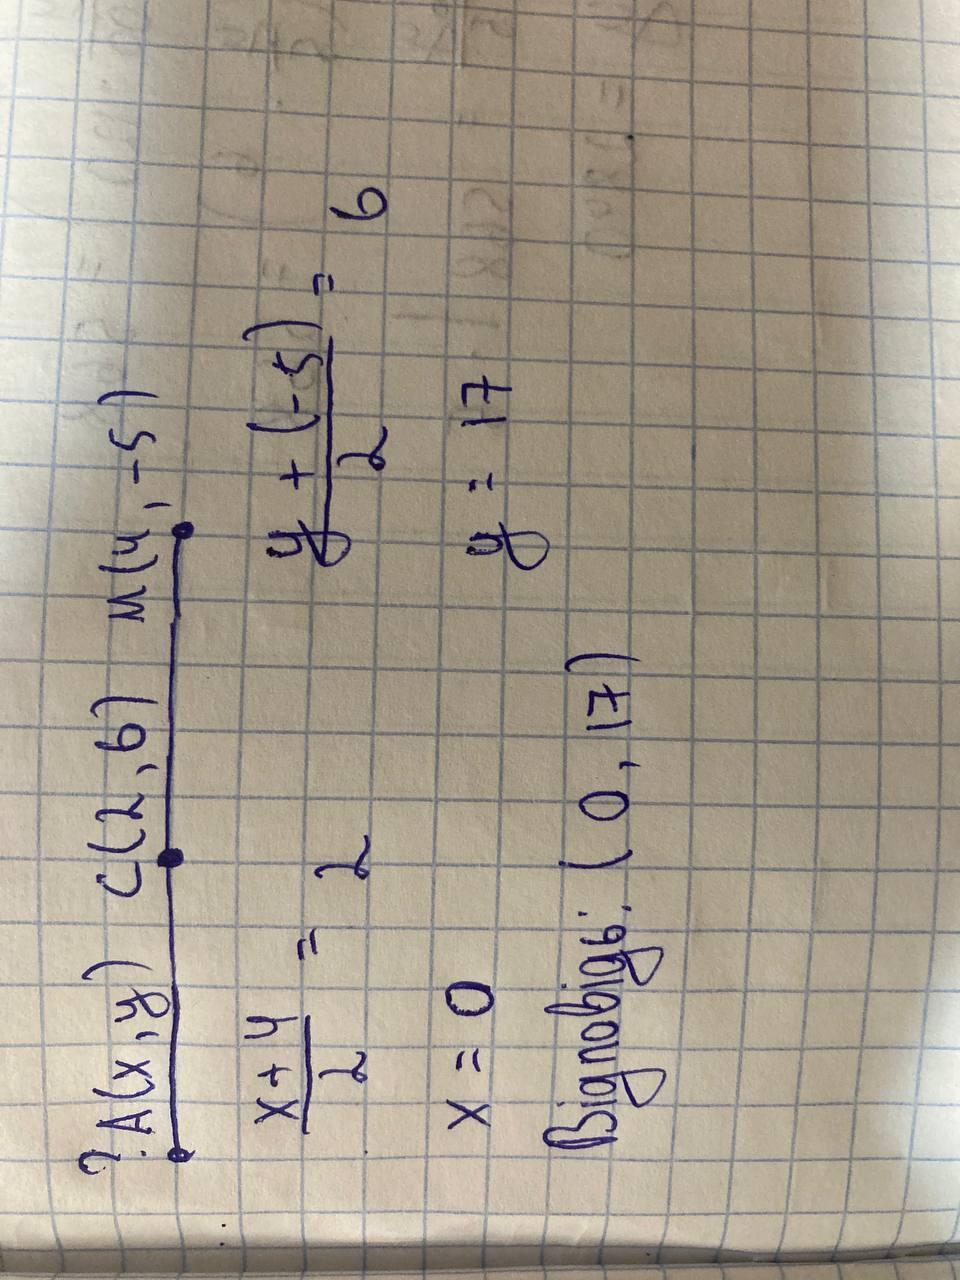 ? A(x,y) C(2,6) M(4,-5)
(x+4)/2 = 2 (y + (-5))/2 = 6
x = 0 y = 17
Відповідь: (0, 17)